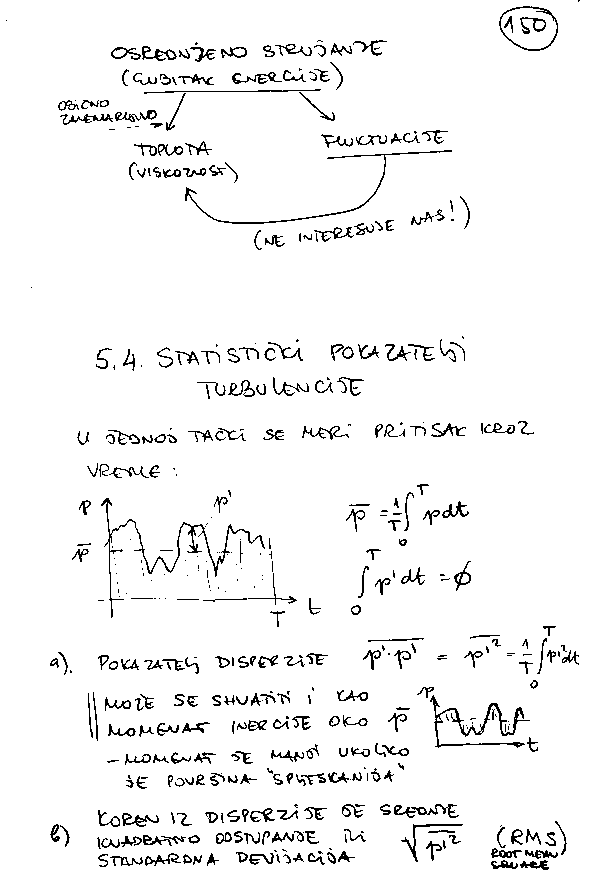 150
OSREDNJENO STRUJANJE
(GUBITAK ENERGIJE)
OBIČNO
ZANEMARLJIVO
TOPLOTA
(VISKOZNOST)
FLUKTUACIJE
(NE INTERESUJE NAS!)
5.4. STATISTIČKI POKAZATELJI
TURBULENCIJE
U JEDNOJ TAČKI SE MERI PRITISAK KROZ
VREME:
p p' p̄ T t
p̄ = 1/T ∫₀ᵀ p dt
∫₀ᵀ p' dt = Ø
a). POKAZATELJ DISPERZIJE \overline{p'·p'} = \overline{p'²} = 1/T ∫₀ᵀ p'² dt
MOŽE SE SHVATITI I KAO
MOMENAT INERCIJE OKO p̄
p t
- MOMENAT JE MANJI UKOLIKO
JE POVRŠINA "SPLJESKANIJA"
b) KOREN IZ DISPERZIJE JE SREDNJE
KVADRATNO ODSTUPANJE ILI √\overline{p'²} (RMS)
STANDARDNA DEVIJACIJA ROOT MEAN
SQUARE